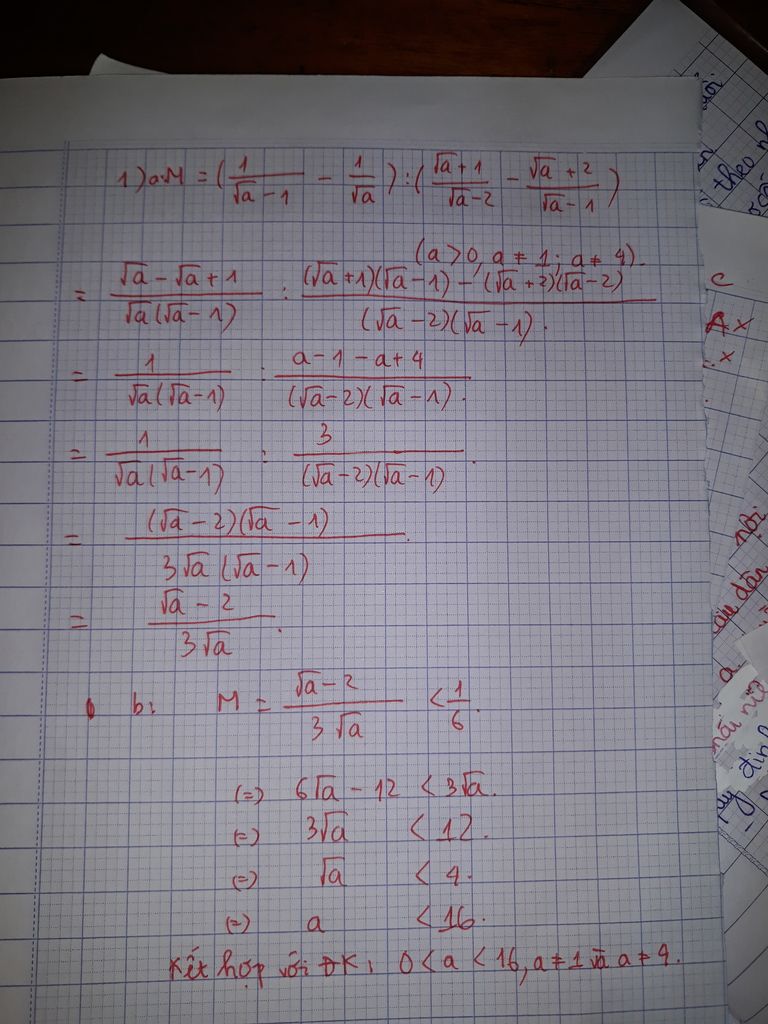 1) a. M = (1/(√a - 1) - 1/√a) : ((√a + 1)/(√a - 2) - (√a + 2)/(√a - 1))
(a > 0, a ≠ 1; a ≠ 4).
= (√a - √a + 1)/(√a(√a - 1)) : ((√a + 1)(√a - 1) - (√a + 2)(√a - 2))/((√a - 2)(√a - 1)).
= 1/(√a(√a - 1)) : (a - 1 - a + 4)/((√a - 2)(√a - 1)).
= 1/(√a(√a - 1)) : 3/((√a - 2)(√a - 1)).
= ((√a - 2)(√a - 1))/(3√a(√a - 1)).
= (√a - 2)/(3√a).
b: M = (√a - 2)/(3√a) < 1/6.
(=) 6√a - 12 < 3√a.
(=) 3√a < 12.
(=) √a < 4.
(=) a < 16.
Kết hợp với ĐK: 0 < a < 16, a ≠ 1 và a ≠ 4.
theo
c
x
x
nội
dân
a
định